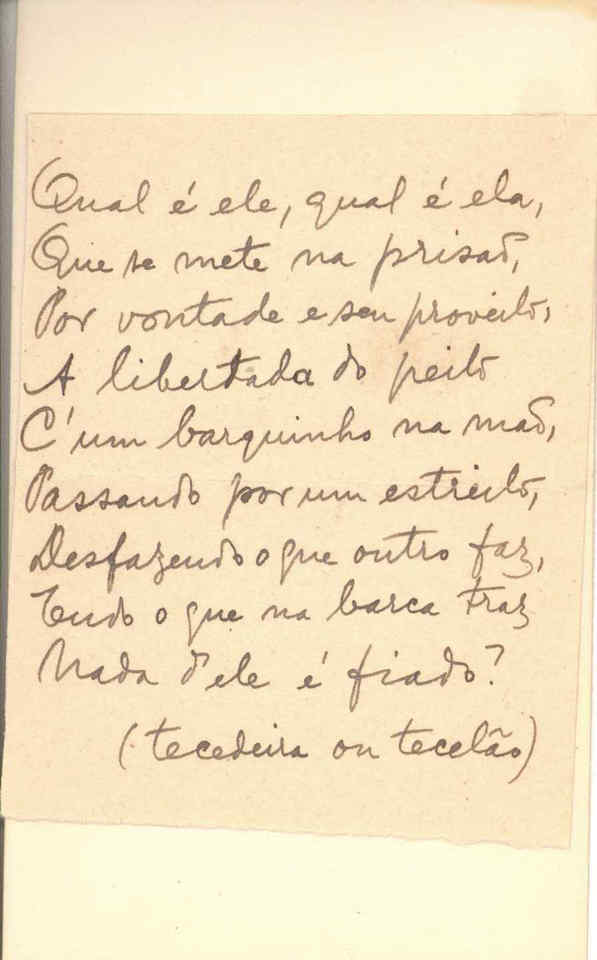 Qual é ele, qual é ela,
Que se mete na prisão,
Por vontade e seu proveito,
A libertada do peito
C'um barquinho na mão,
Passando por um estreito,
Desfazendo o que outro faz,
Tudo o que na barca traz
Nada d'ele é fiado?
(tecedeira ou tecelão)